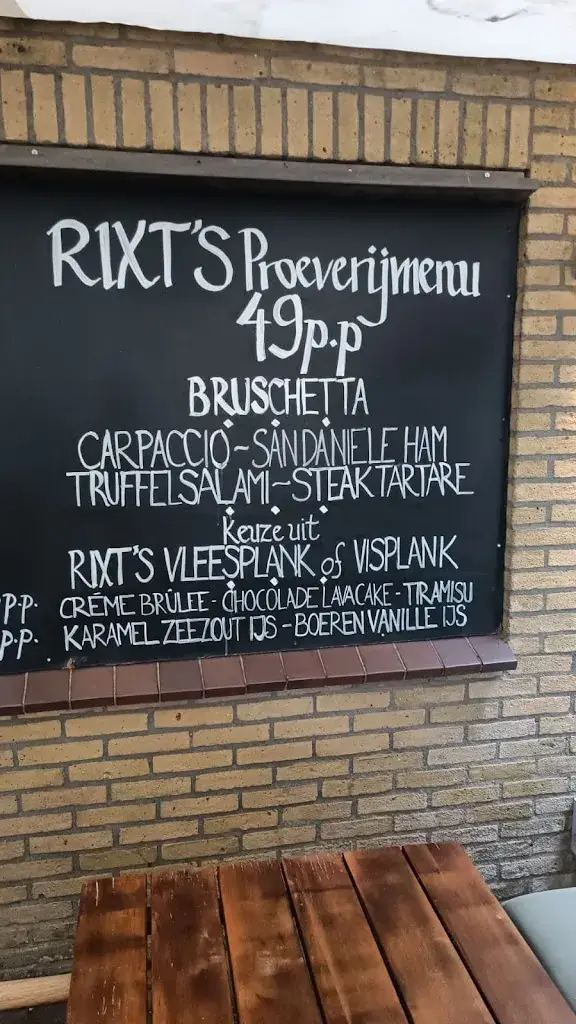 RIXT'S Proeverijmenu
49 p.p
BRUSCHETTA
CARPACCIO ~ SAN DANIELE HAM
TRUFFELSALAMI ~ STEAK TARTARE
Keuze uit
RIXT'S VLEESPLANK of VISPLANK
P.P. CRÈME BRÛLEE - CHOCOLADE LAVACAKE - TIRAMISU
P.P. KARAMEL ZEEZOUT IJS - BOEREN VANILLE IJS